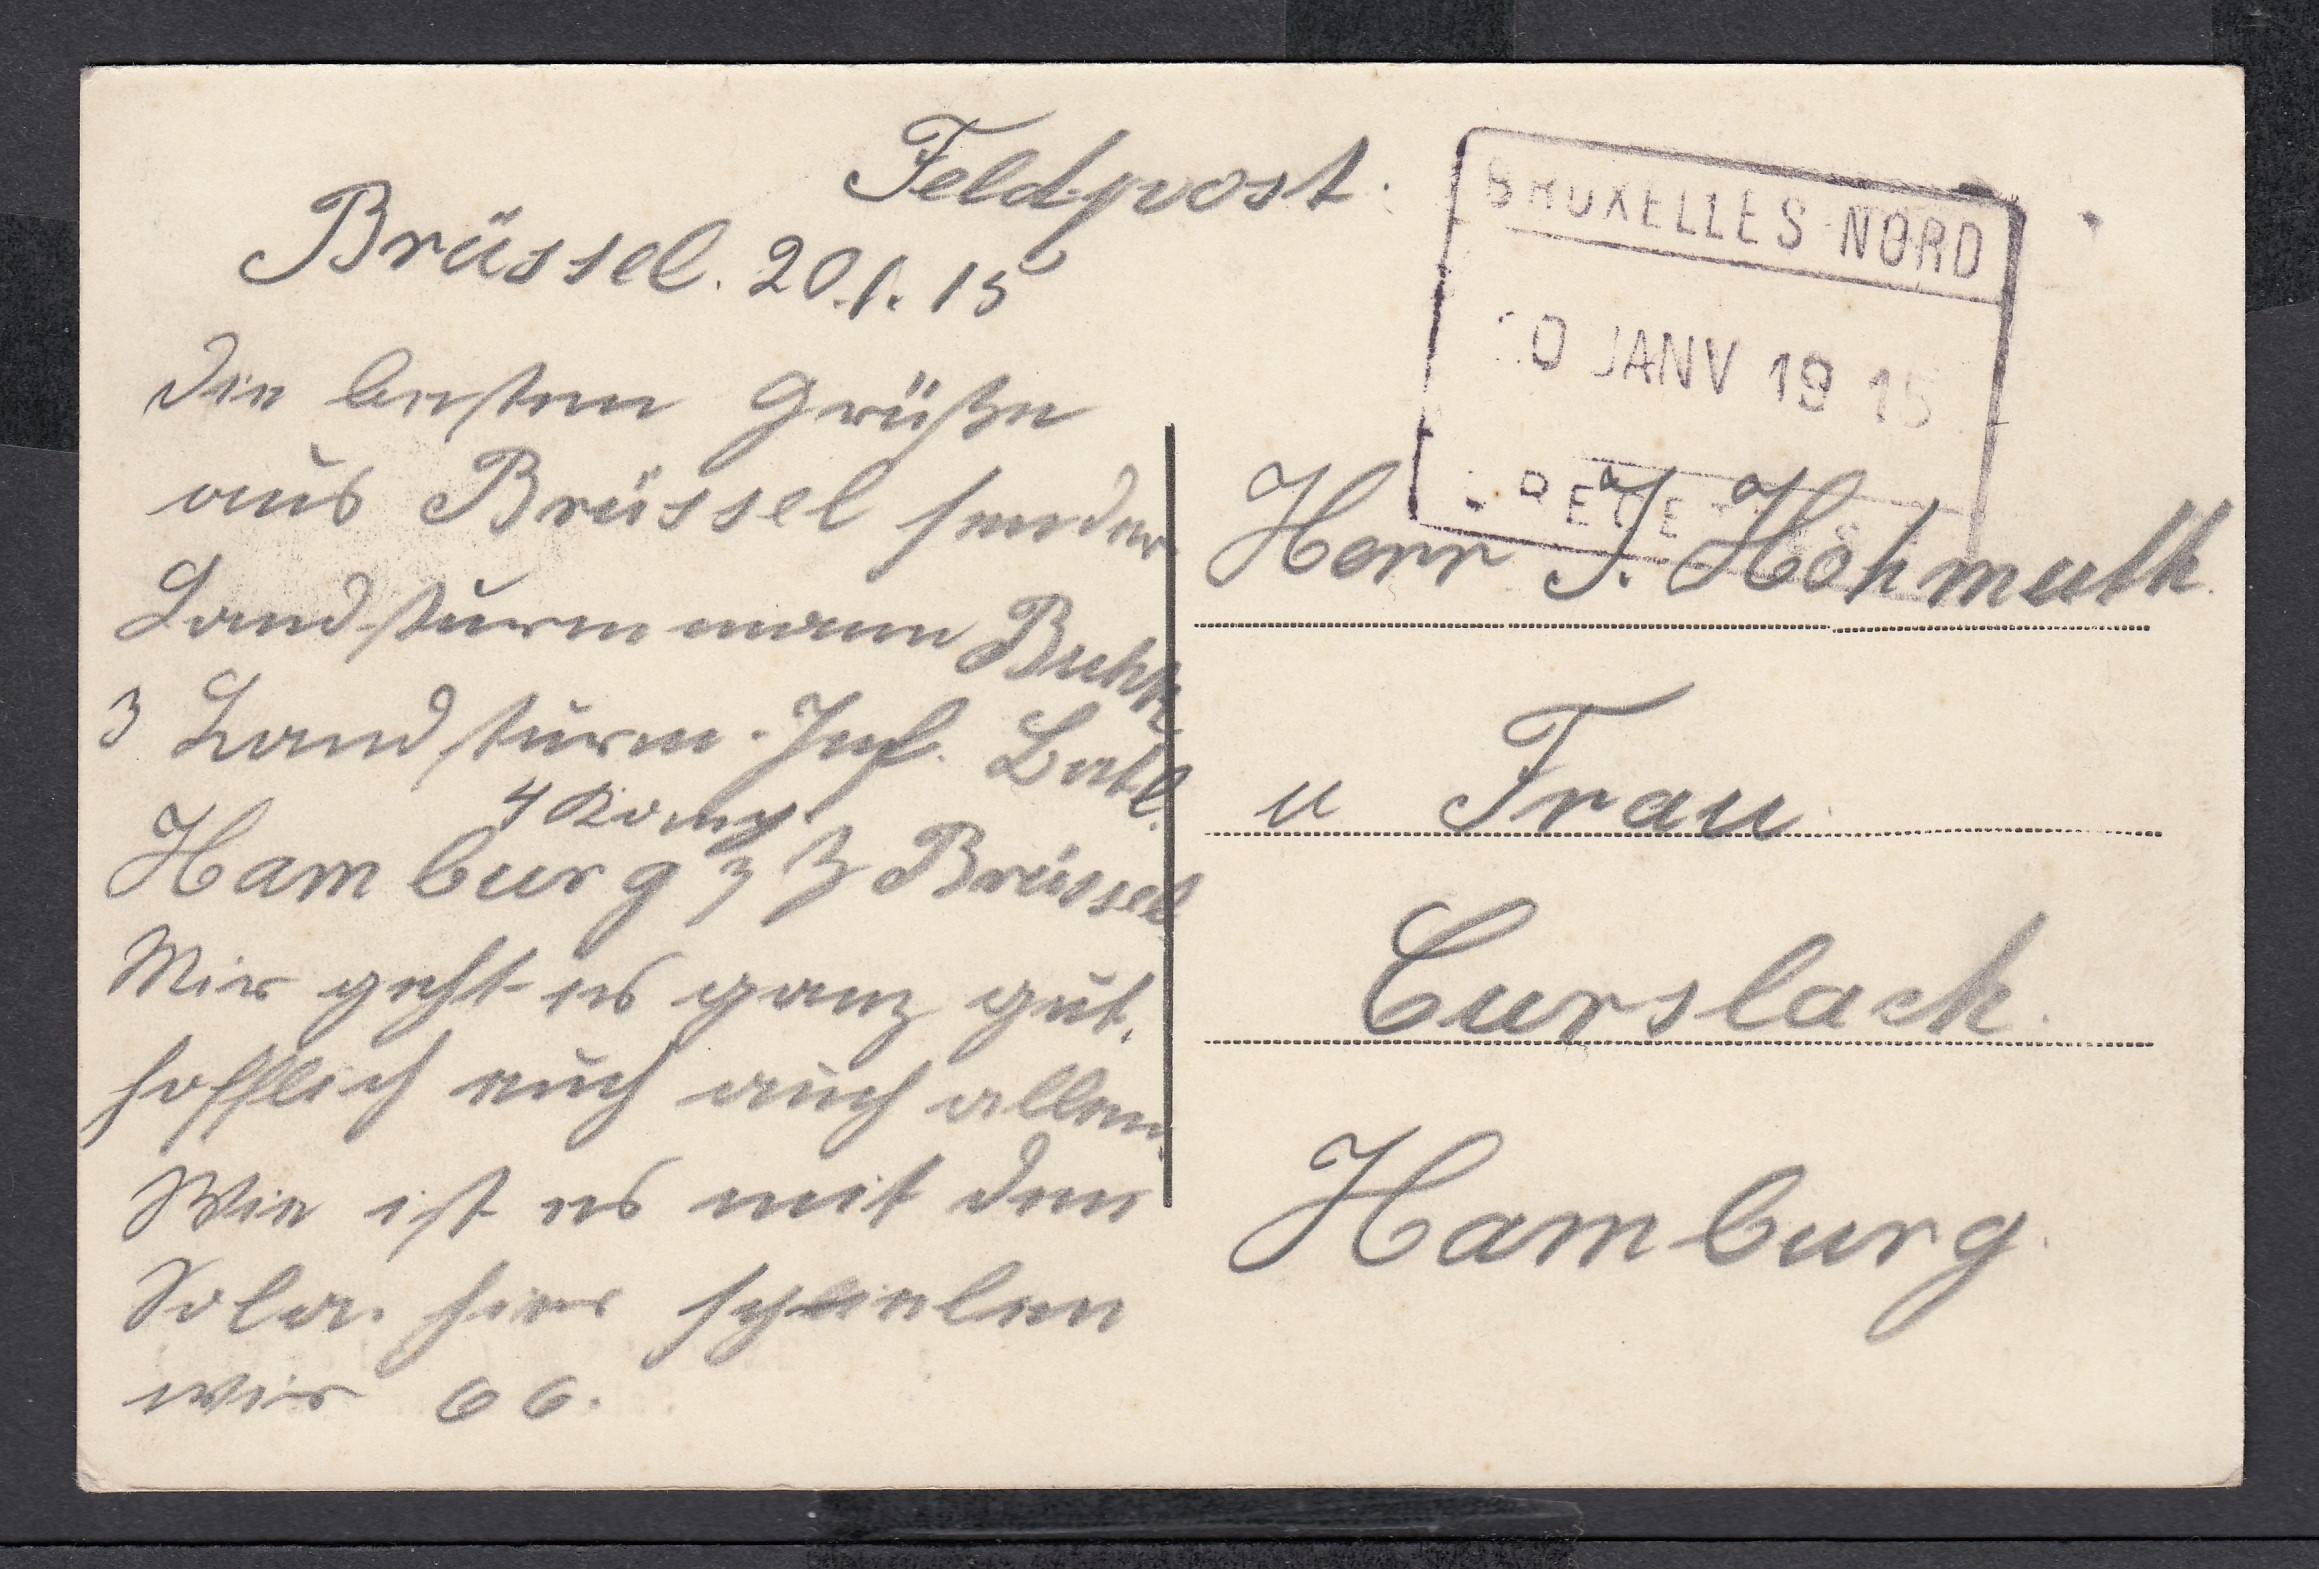 Feldpost.
Brüssel. 20.1.15
Die besten Grüße
aus Brüssel sendet
Landsturmmann Buhk
3 Landsturm-Inf. Batl.
4 Komp.
Hamburg z Z Brüssel
Mir geht es ganz gut.
hofflich euch auch allen.
Wie ist es mit den
Solo. hier spielen
wir 66.
BRUXELLES NORD
20 JANV 1915
Herr J. Hohmuth.
u Frau
Curslack.
Hamburg.